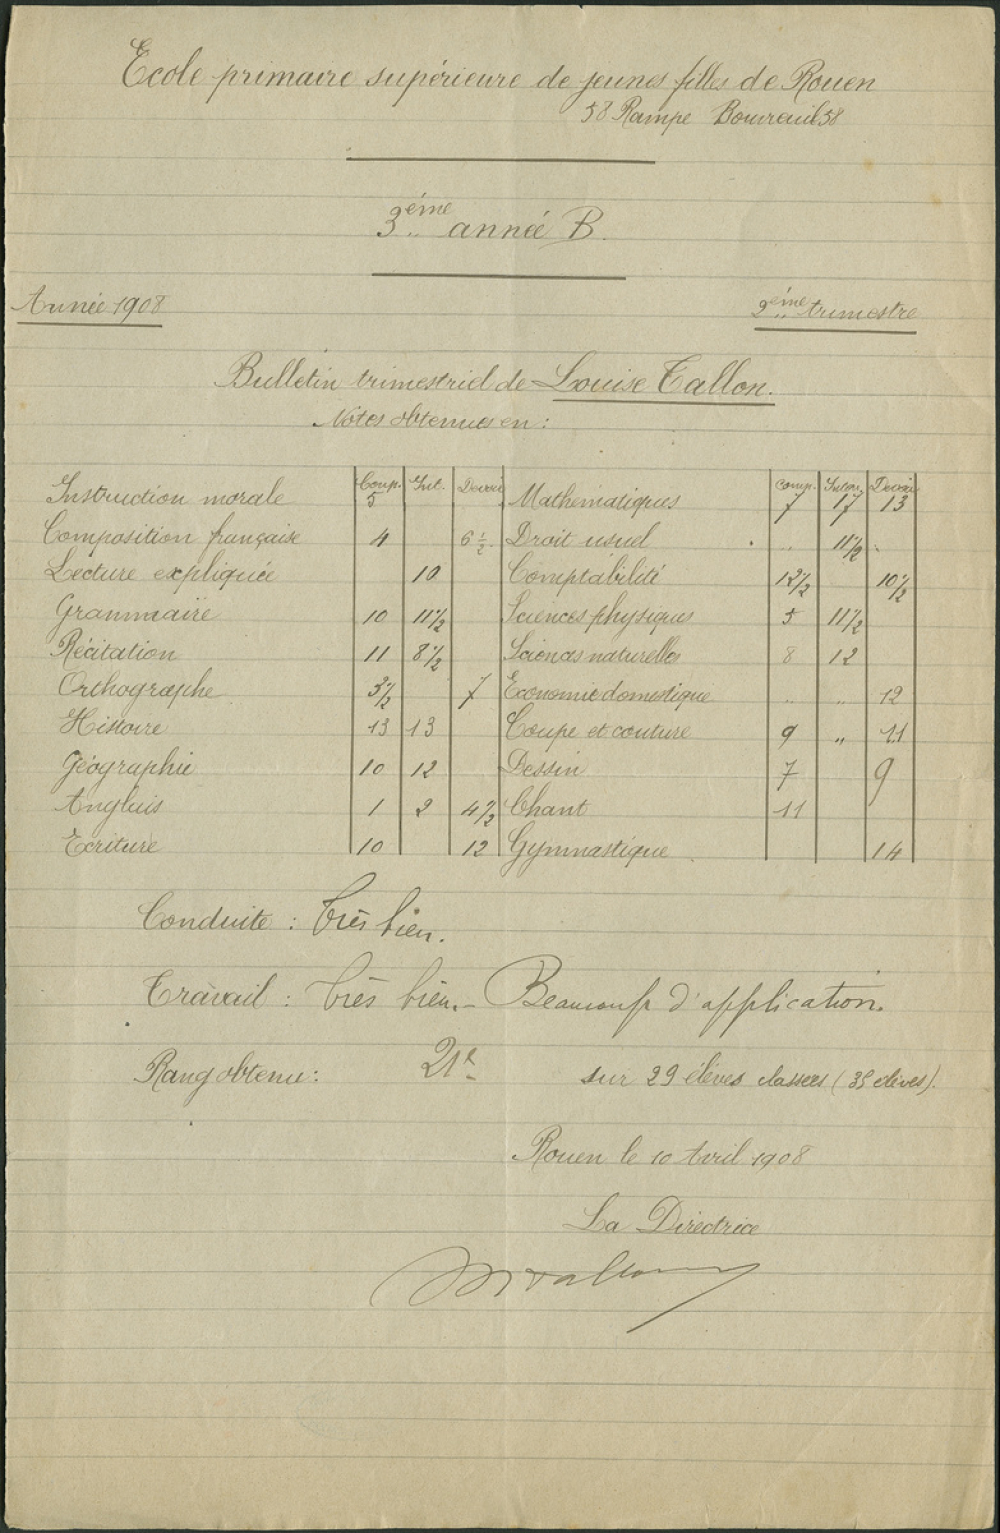 Ecole primaire supérieure de jeunes filles de Rouen
58 Rampe Bouvreuil 58
3ème année B.
Année 1908
2ème trimestre
Bulletin trimestriel de Louise Tallon.
Notes obtenues en :
Comp. Int. Devoir comp. Interr. Devoir
Instruction morale 5 Mathématiques 7 17 13
Composition française 4 6 1/2 Droit usuel " 11 1/2
Lecture expliquée 10 Comptabilité 12 1/2 10 1/2
Grammaire 10 11 1/2 Sciences physiques 5 11 1/2
Récitation 11 8 1/2 Sciences naturelles 8 12
Orthographe 3 1/2 7 Economie domestique " " 12
Histoire 13 13 Coupe et couture 9 " 11
Géographie 10 12 Dessin 7 9
Anglais 1 2 4 1/2 Chant 11
Ecriture 10 12 Gymnastique 14
Conduite : Très bien.
Travail : Très bien. – Beaucoup d'application.
Rang obtenu : 21e sur 29 élèves classées (35 élèves).
Rouen le 10 Avril 1908
La Directrice